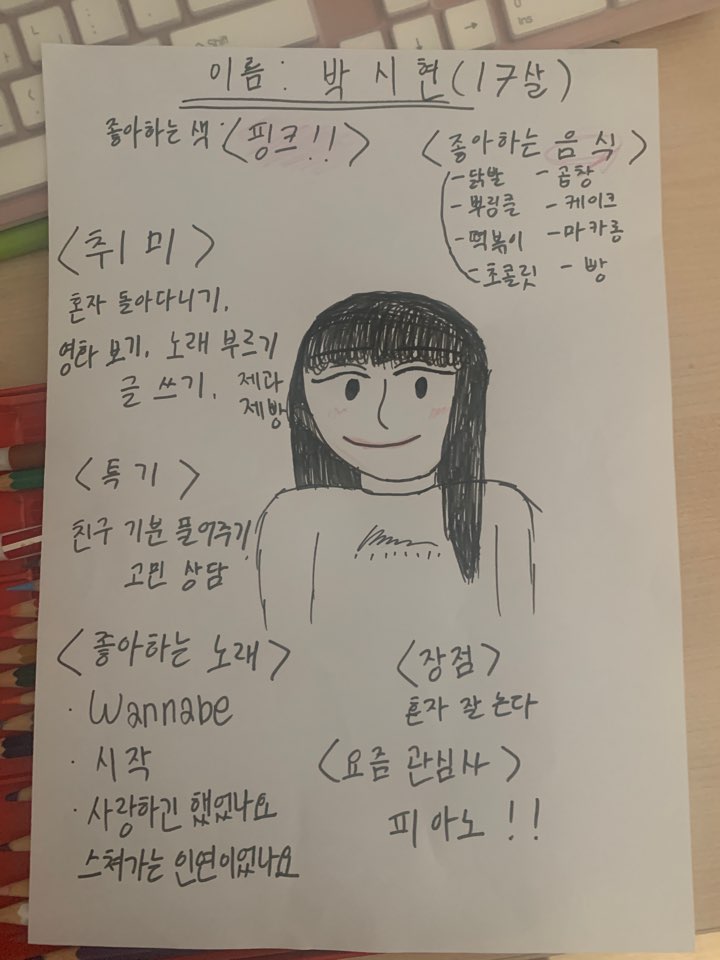 이름: 박시현(17살)
좋아하는 색: <핑크!!>
<좋아하는 음식>
- 닭발 - 곱창
- 뿌링클 - 케이크
- 떡볶이 - 마카롱
- 초콜릿 - 빵
<취미>
혼자 돌아다니기,
영화 보기, 노래 부르기
글 쓰기, 제과
제빵
<특기>
친구 기분 풀어주기,
고민 상담
<좋아하는 노래>
· Wannabe
· 시작
· 사랑하긴 했었나요
스쳐가는 인연이었나요
<장점>
혼자 잘 논다
<요즘 관심사>
피아노!!